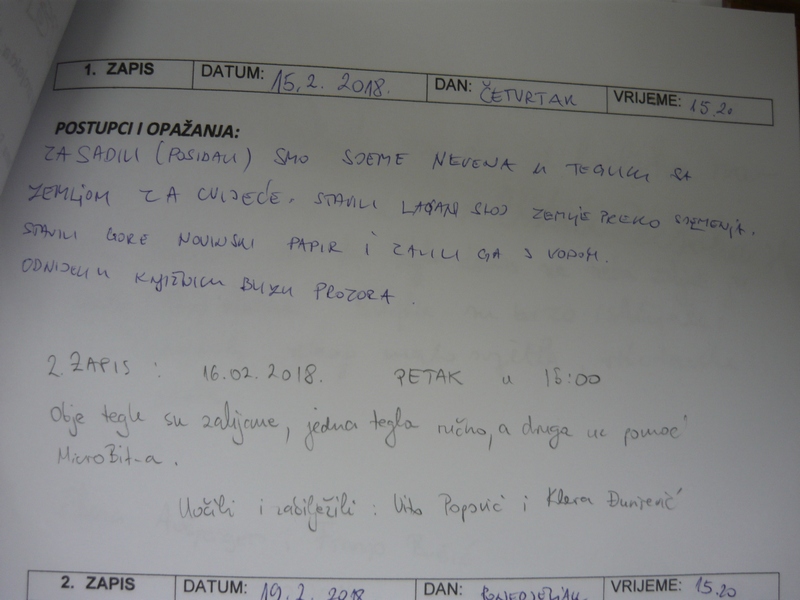 1. ZAPIS DATUM: 15.2. 2018. DAN: ČETVRTAK VRIJEME: 15.20
POSTUPCI I OPAŽANJA:
ZASADILI (POSIDALI) SMO SJEME NEVENA U TEGLICU SA
ZEMLJOM ZA CVIJEĆE. STAVILI LAGANI SLOJ ZEMLJE PREKO SJEMENJA.
STAVILI GORE NOVINSKI PAPIR I ZALILI GA S VODOM.
ODNIJELI U KNJIŽNICU BLIZU PROZORA.
2. ZAPIS : 16.02.2018. PETAK u 16:00
Obje tegle su zalijane, jedna tegla ručno, a druga uz pomoć
MicroBit-a.
Uočili i zabilježili : Vito Popović i Klara
2. ZAPIS DATUM: 19.2. 2018 DAN: PONEDJELJAK. VRIJEME: 15.20